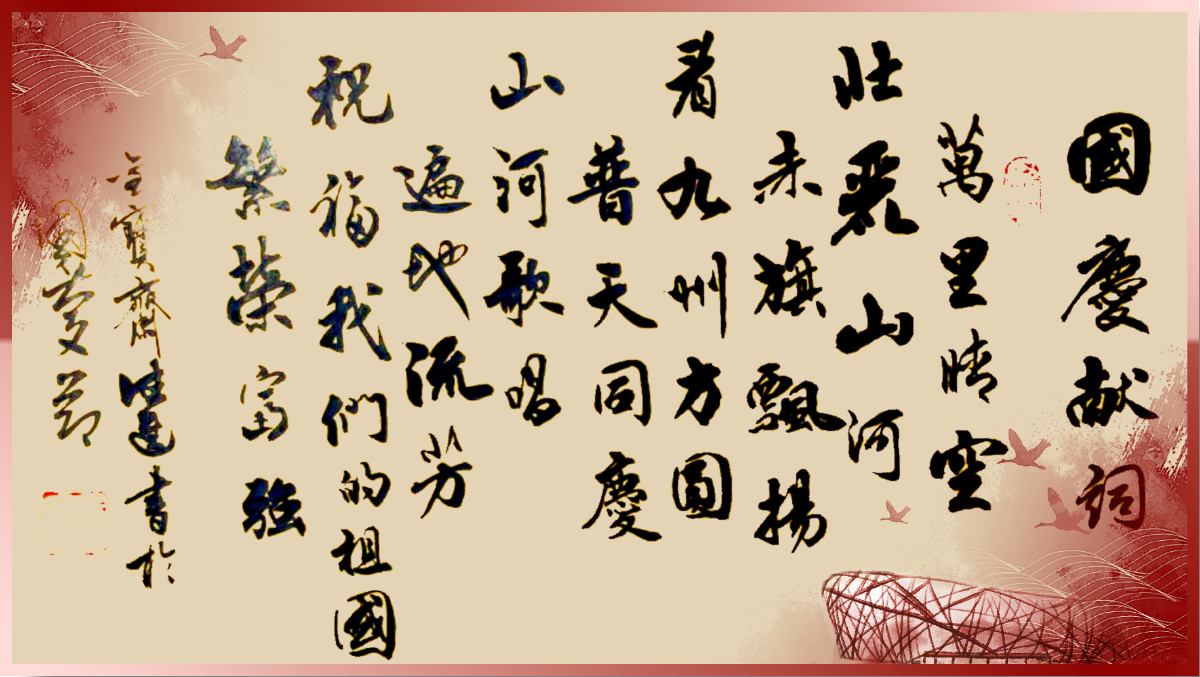 國慶献詞
萬里晴空
壯麗山河
朱旗飄揚
看九州方圓
普天同慶
山河歌唱
遍地流芳
祝福我們的祖國
繁榮富強
寶齋書於
國慶節